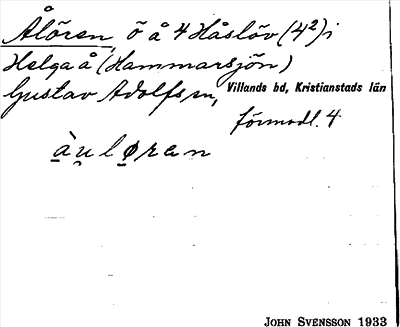 Ålören, ö å 4 Håslöv (4²) i
Helga å (Hammarsjön)
Gustav Adolfs sn, Villands hd, Kristianstads län
förmodl. 4
àu̯løren
JOHN SVENSSON 1933